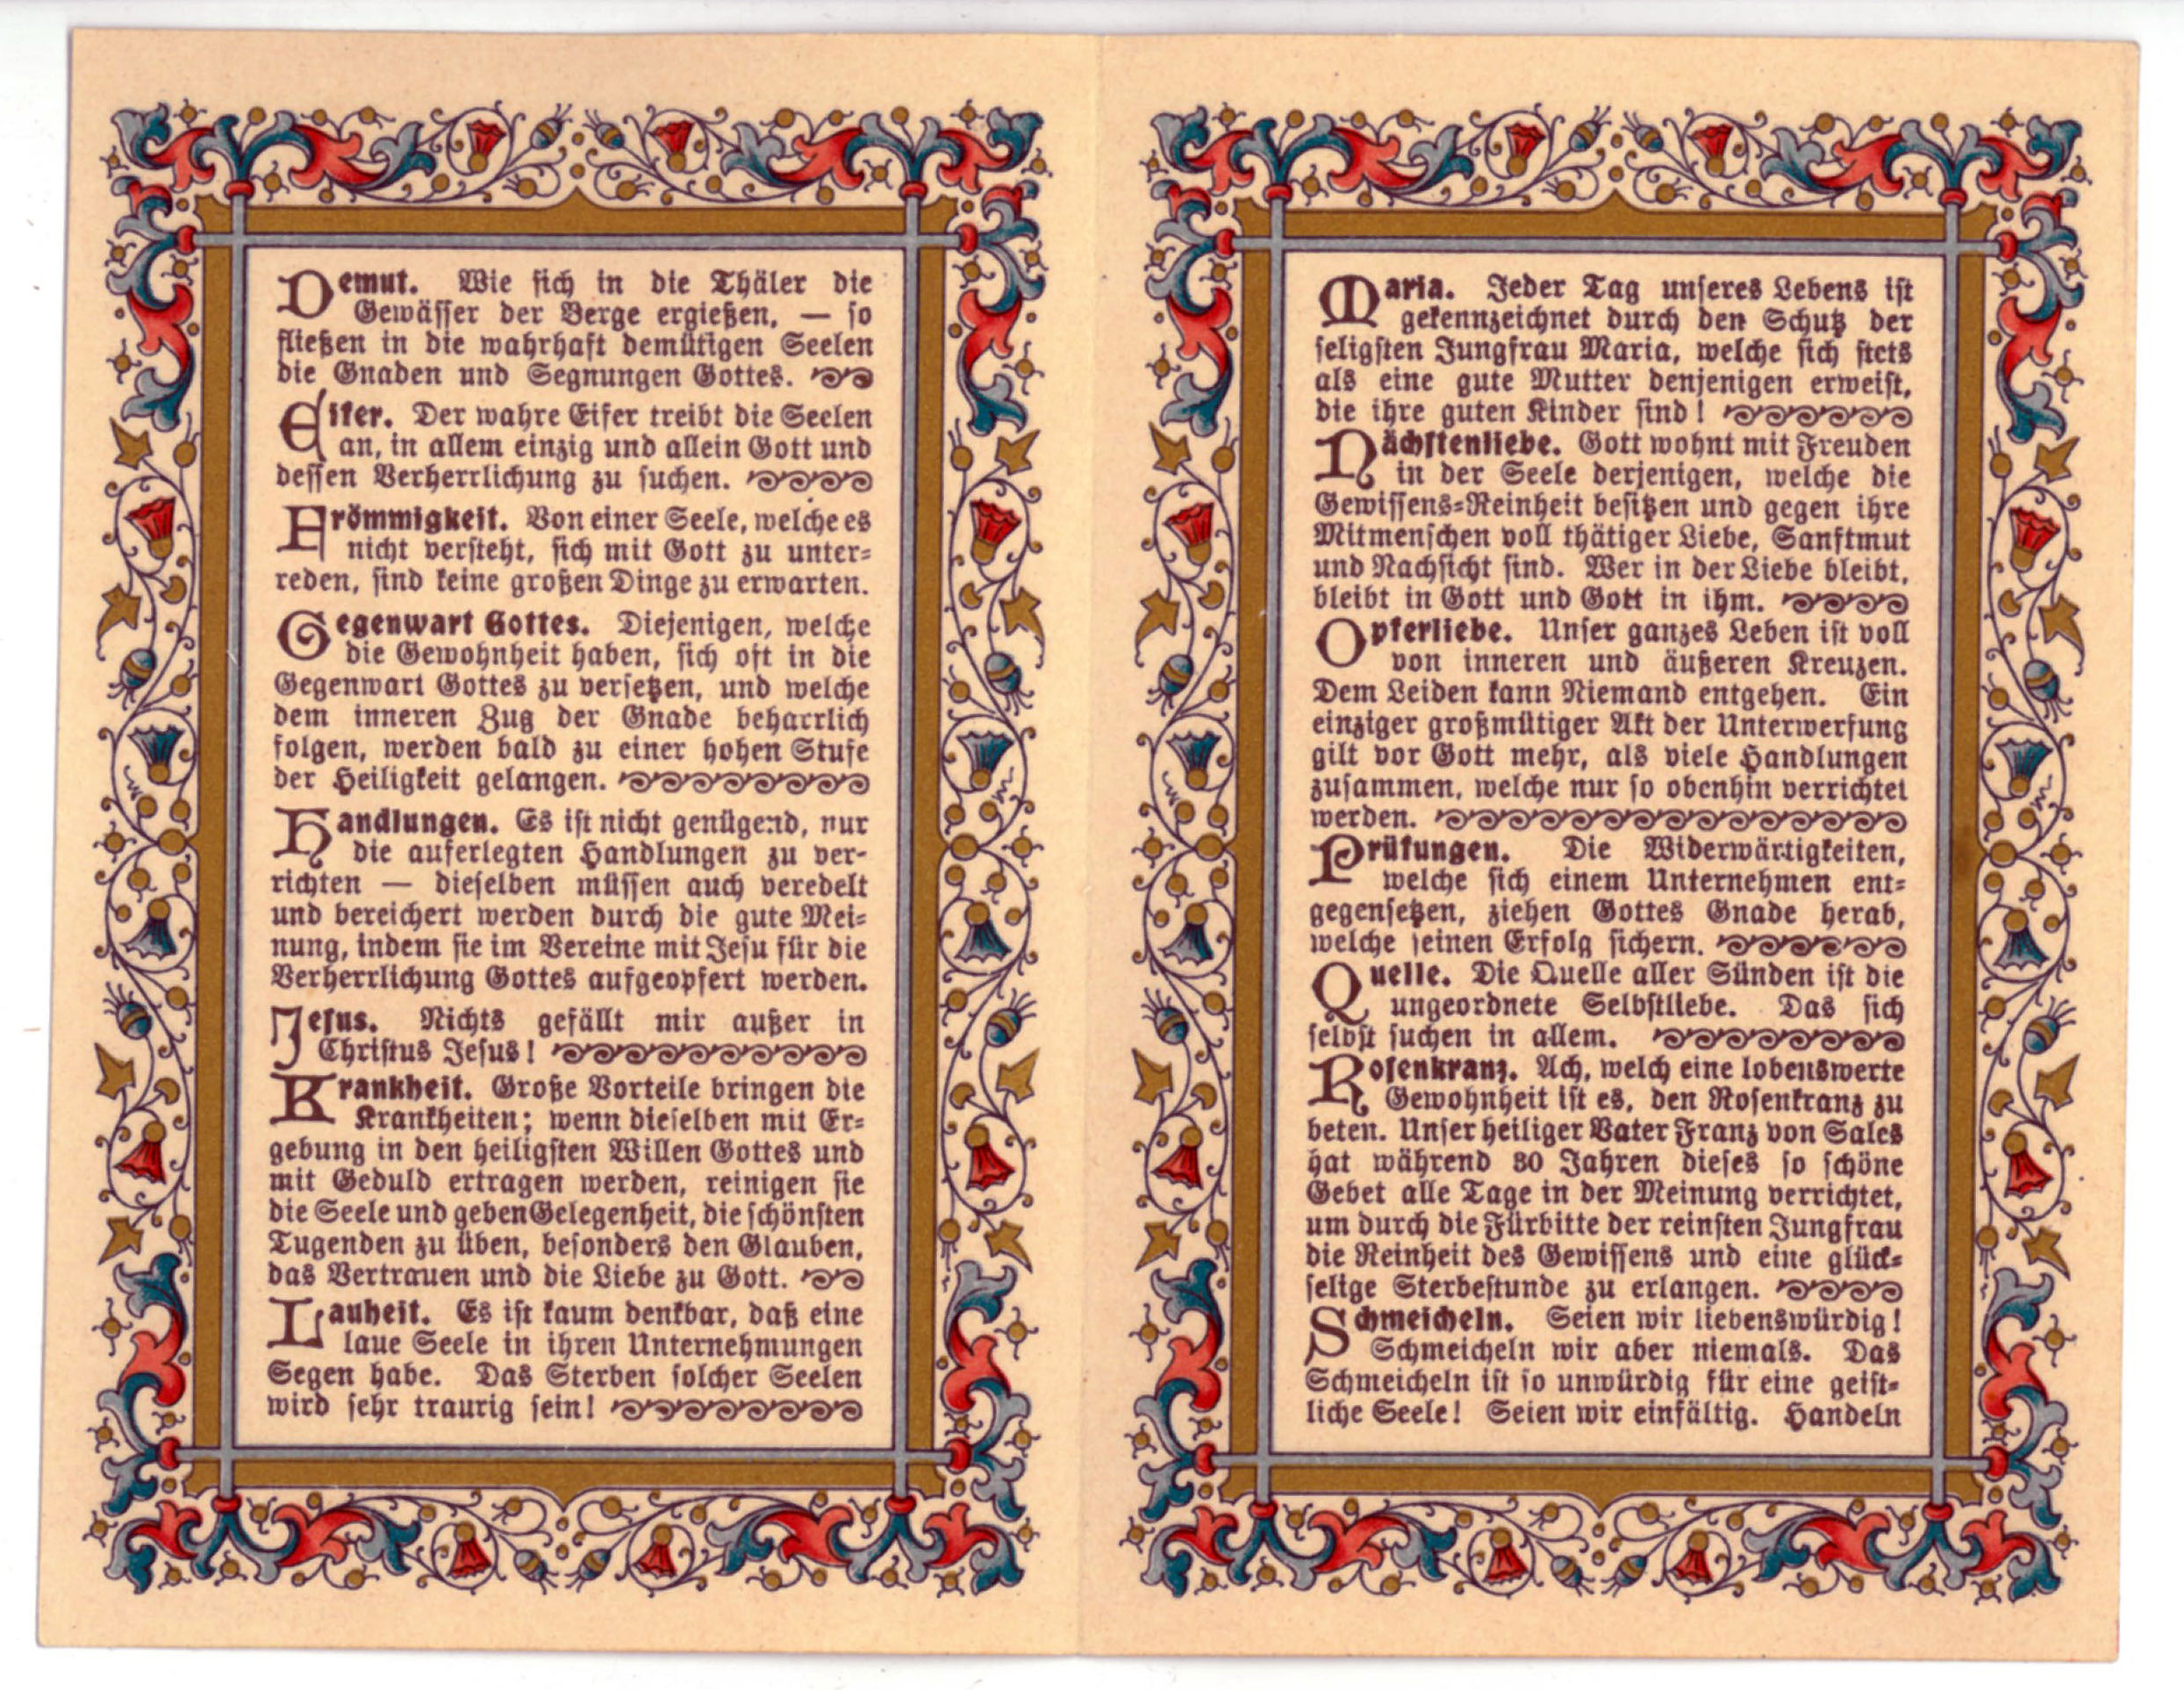 Demut. Wie sich in die Thäler die
Gewässer der Berge ergießen, — so
fließen in die wahrhaft demütigen Seelen
die Gnaden und Segnungen Gottes.
Eifer. Der wahre Eifer treibt die Seelen
an, in allem einzig und allein Gott und
dessen Verherrlichung zu suchen.
Frömmigkeit. Von einer Seele, welche es
nicht versteht, sich mit Gott zu unter-
reden, sind keine großen Dinge zu erwarten.
Gegenwart Gottes. Diejenigen, welche
die Gewohnheit haben, sich oft in die
Gegenwart Gottes zu versetzen, und welche
dem inneren Zug der Gnade beharrlich
folgen, werden bald zu einer hohen Stufe
der Heiligkeit gelangen.
Handlungen. Es ist nicht genügend, nur
die auferlegten Handlungen zu ver-
richten — dieselben müssen auch veredelt
und bereichert werden durch die gute Mei-
nung, indem sie im Vereine mit Jesu für die
Verherrlichung Gottes aufgeopfert werden.
Jesus. Nichts gefällt mir außer in
Christus Jesus!
Krankheit. Große Vorteile bringen die
Krankheiten; wenn dieselben mit Er-
gebung in den heiligsten Willen Gottes und
mit Geduld ertragen werden, reinigen sie
die Seele und geben Gelegenheit, die schönsten
Tugenden zu üben, besonders den Glauben,
das Vertrauen und die Liebe zu Gott.
Lauheit. Es ist kaum denkbar, daß eine
laue Seele in ihren Unternehmungen
Segen habe. Das Sterben solcher Seelen
wird sehr traurig sein!
Maria. Jeder Tag unseres Lebens ist
gekennzeichnet durch den Schutz der
seligsten Jungfrau Maria, welche sich stets
als eine gute Mutter denjenigen erweist,
die ihre guten Kinder sind!
Nächstenliebe. Gott wohnt mit Freuden
in der Seele derjenigen, welche die
Gewissens-Reinheit besitzen und gegen ihre
Mitmenschen voll thätiger Liebe, Sanftmut
und Nachsicht sind. Wer in der Liebe bleibt,
bleibt in Gott und Gott in ihm.
Opferliebe. Unser ganzes Leben ist voll
von inneren und äußeren Kreuzen.
Dem Leiden kann Niemand entgehen. Ein
einziger großmütiger Akt der Unterwerfung
gilt vor Gott mehr, als viele Handlungen
zusammen, welche nur so obenhin verrichtet
werden.
Prüfungen. Die Widerwärtigkeiten,
welche sich einem Unternehmen ent-
gegensetzen, ziehen Gottes Gnade herab,
welche seinen Erfolg sichern.
Quelle. Die Quelle aller Sünden ist die
ungeordnete Selbstliebe. Das sich
selbst suchen in allem.
Rosenkranz. Ach, welch eine lobenswerte
Gewohnheit ist es, den Rosenkranz zu
beten. Unser heiliger Vater Franz von Sales
hat während 30 Jahren dieses so schöne
Gebet alle Tage in der Meinung verrichtet,
um durch die Fürbitte der reinsten Jungfrau
die Reinheit des Gewissens und eine glück-
selige Sterbestunde zu erlangen.
Schmeicheln. Seien wir liebenswürdig!
Schmeicheln wir aber niemals. Das
Schmeicheln ist so unwürdig für eine geist-
liche Seele! Seien wir einfältig. Handeln